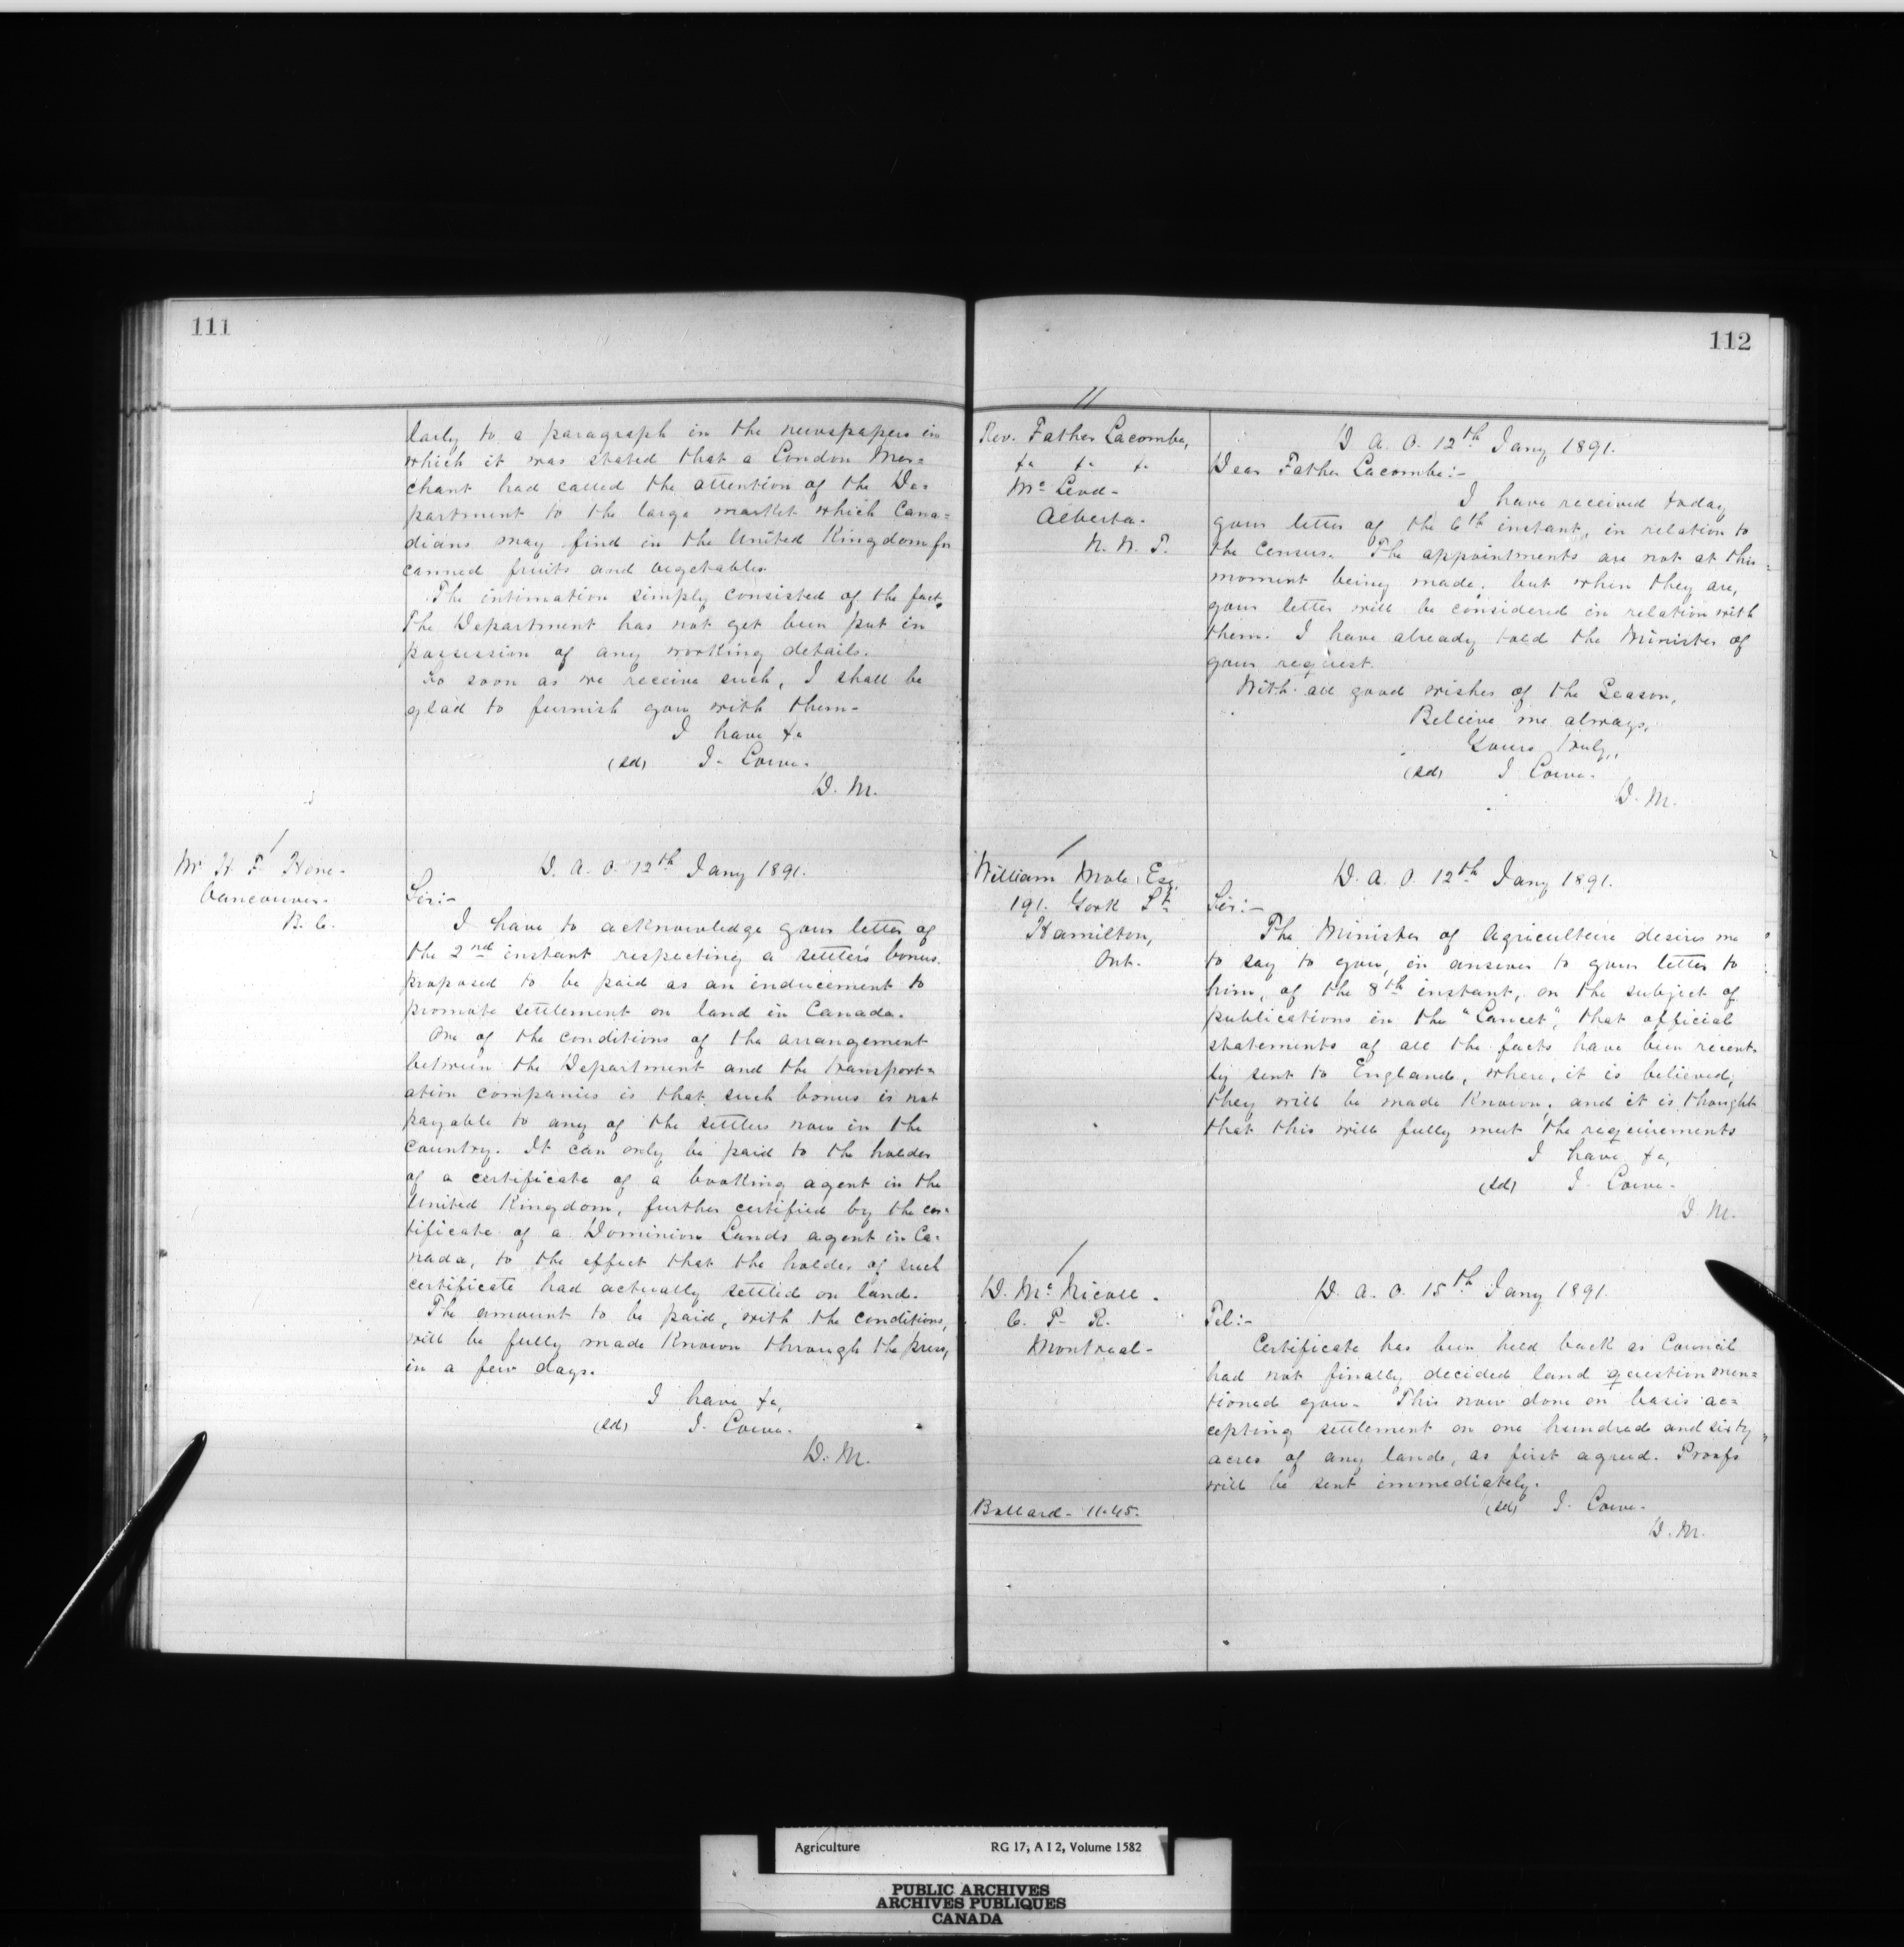 111
larly to a paragraph in the newspapers in
which it was stated that a London Mer=
chant had called the attention of the De=
partment to the large market which Cana=
dians may find in the United Kingdom for
canned fruits and vegetables.
The intimation simply consisted of the fact.
The Department has not yet been put in
possession of any working details.
So soon as we receive such, I shall be
glad to furnish you with them-
I have &c
(sd) J. Lowe.
D. M.
Mr H. F. Hone-
Vancouver-
B. C.
D. A. O. 12th Jany 1891.
Sir:-
I have to acknowledge your letter of
the 2nd instant respecting a settler's bonus.
proposed to be paid as an inducement to
promote settlement on land in Canada.
One of the conditions of the arrangement
between the Department and the transport=
ation companies is that such bonus is not
payable to any of the settlers now in the
country. It can only be paid to the holder
of a certificate of a booking agent in the
United Kingdom, further certified by the cer=
tificate of a Dominion Lands agent in Ca=
nada, to the effect that the holder of such
certificate had actually settled on land.
The amount to be paid, with the conditions,
will be fully made known through the press,
in a few days.
I have &c,
(sd) J. Lowe.
D. M.
112
11
Rev. Father Lacombe,
&c &c &c
Mc Leod-
Alberta-
N. W. T.
D. A. O. 12th Jany 1891.
Dear Father Lacombe:-
I have received today
your letter of the 6th instant, in relation to
the Census. The appointments are not at this
moment being made; but when they are,
your letter will be considered in relation with
them. I have already told the Minister of
your request.
With all good wishes of the Season,
Believe me always,
Yours truly,
(sd) J Lowe.
D. M.
William Mole, Esq.
191. York St.
Hamilton,
Ont.
D. A. O. 12th Jany 1891.
Sir:-
The Minister of Agriculture desires me
to say to you, in answer to your letter to
him, of the 8th instant, on the subject of
publications in the "Lancet", that official
statements of all the facts have been recent-
ly sent to England, where, it is believed,
they will be made known; and it is thought
that this will fully meet the requirements
I have &c,
(sd) J. Lowe-
D. M.
D. Mc Nicoll.
C. P. R.
Montreal-
D. A. O. 15th Jany 1891.
Tel:-
Certificate has been held back as Council
had not finally decided land question men=
tioned you- This now done on basis ac=
cepting settlement on one hundred and sixty
acres of any lands, as first agreed. Proofs
will be sent immediately.
(sd) J. Lowe-
D. M.
Ballard- 11.45.
Agriculture RG 17, A I 2, Volume 1582
PUBLIC ARCHIVES
ARCHIVES PUBLIQUES
CANADA